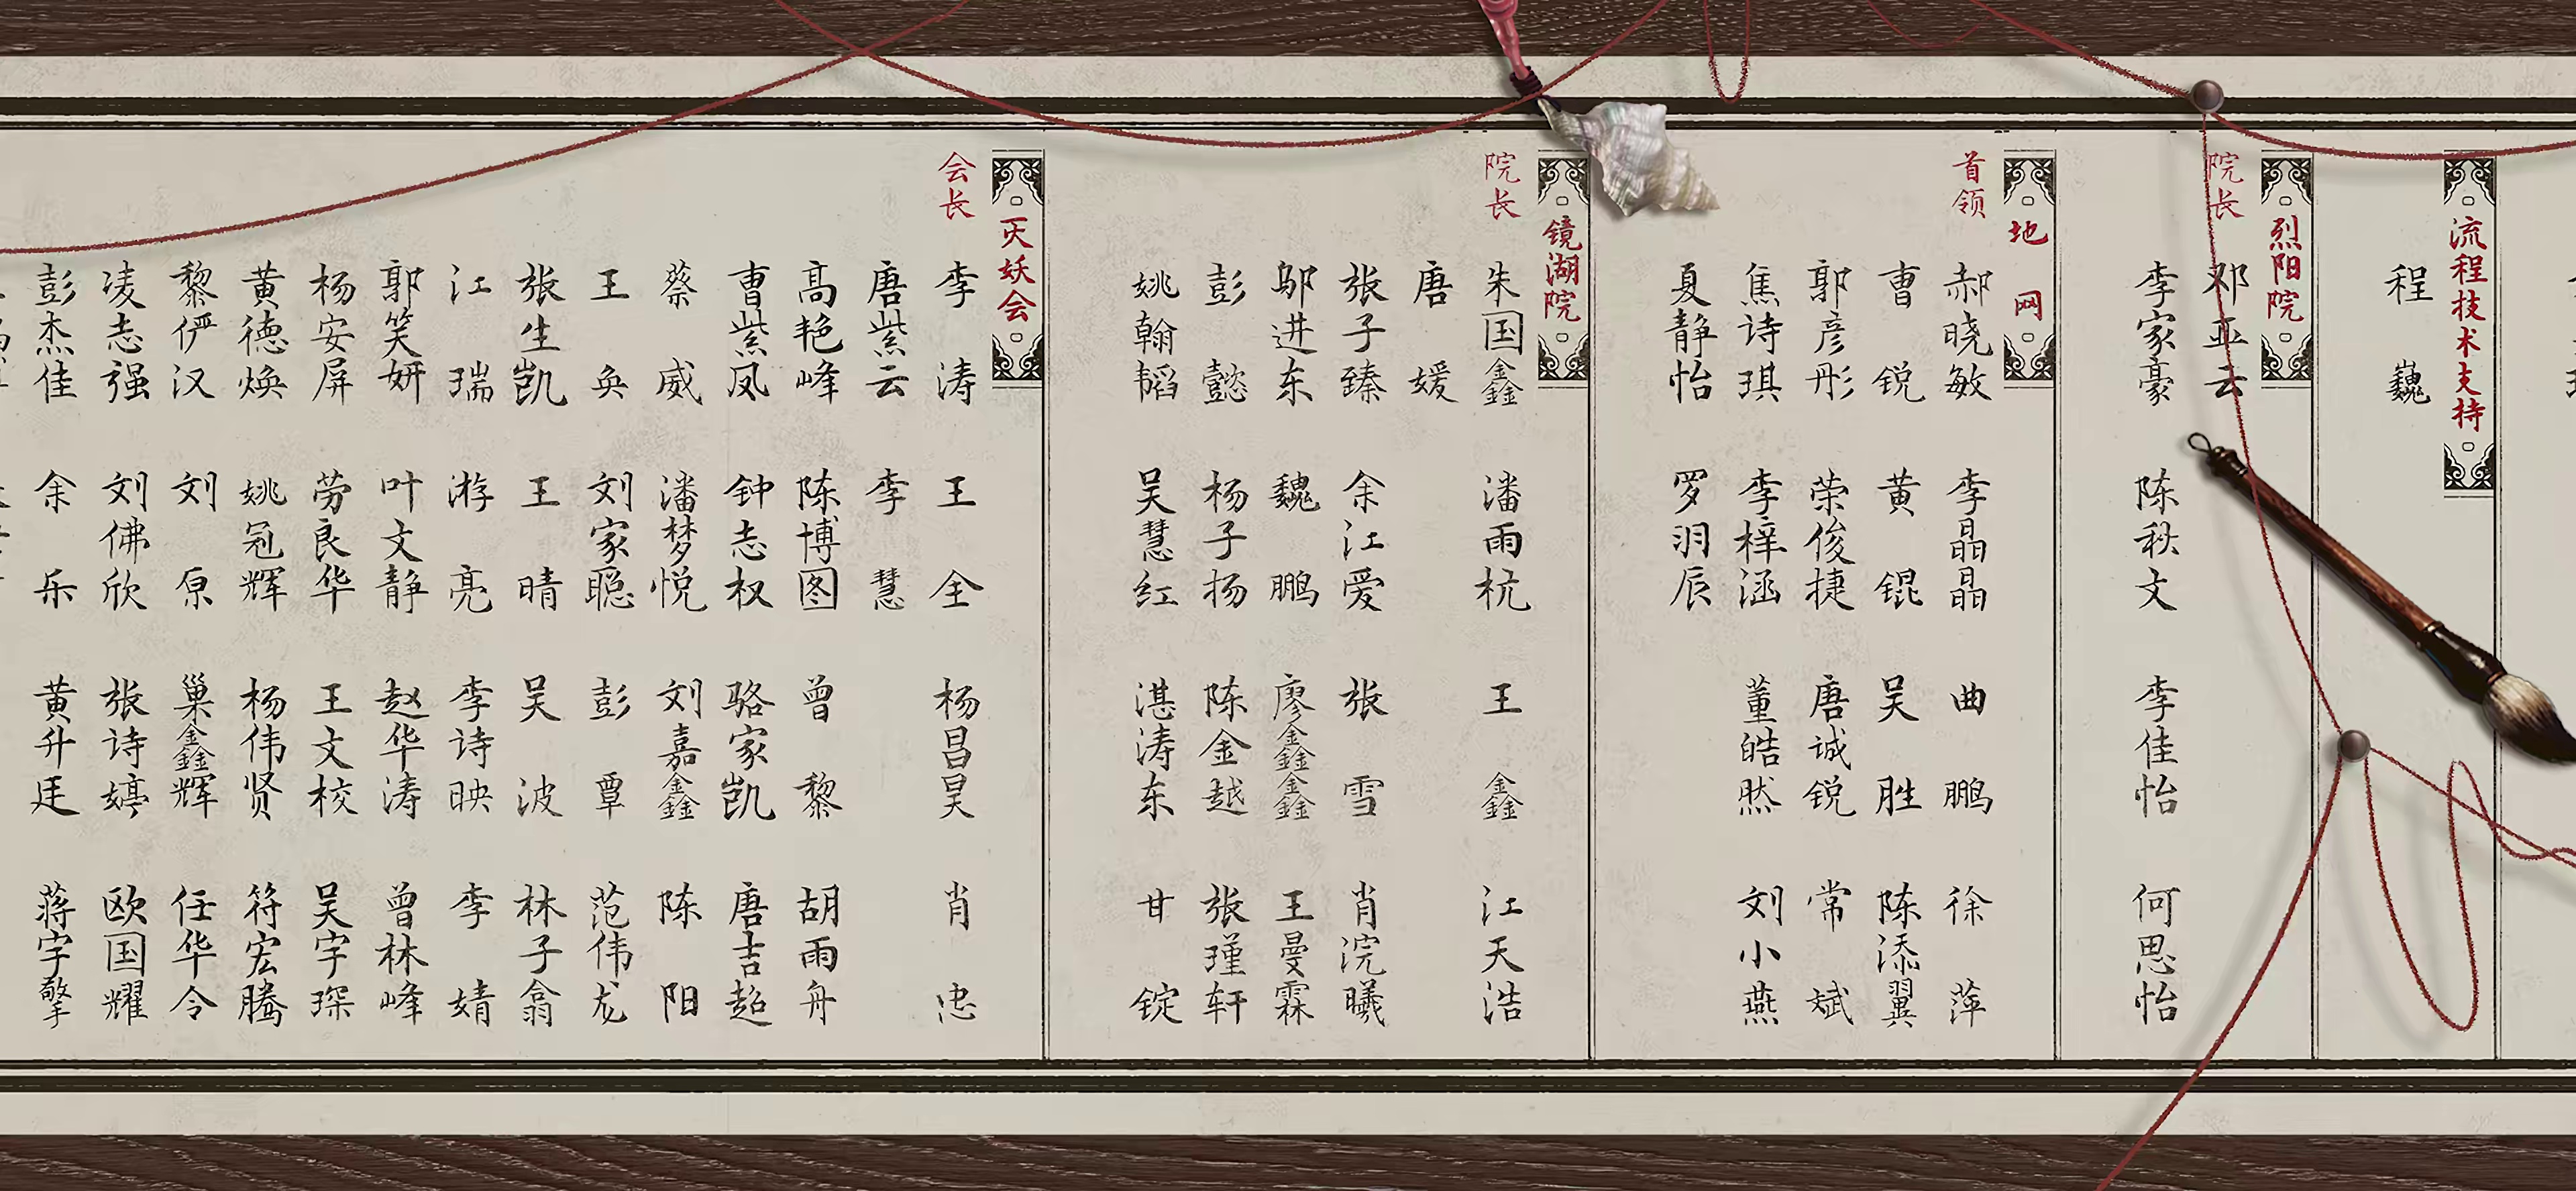 流程技术支持
程巍
烈阳院
院长
邓亚云
李家豪 陈秋文 李佳怡 何思怡
地网
首领
郝晓敏 李晶晶 曲鹏 徐萍
曹锐 黄锟 吴胜 陈添翼
郭彦彤 荣俊捷 唐诚锐 常斌
焦诗琪 李梓涵 董皓然 刘小燕
夏静怡 罗羽辰
镜湖院
院长
朱国鑫 潘雨杭 王鑫 江天浩
唐媛
张子臻 余江爱 张雪 肖浣曦
邬进东 魏鹏 廖鑫鑫 王曼霖
彭懿 杨子扬 陈金越 张瑾轩
姚翰韬 吴慧红 湛涛东 甘锭
天妖会
会长
李涛 王全 杨昌昊 肖忠
唐紫云 李慧
高艳峰 陈博图 曾黎 胡雨舟
曹紫凤 钟志权 骆家凯 唐吉超
蔡威 潘梦悦 刘嘉鑫 陈阳
王奂 刘家聪 彭覃 范伟龙
张生凯 王晴 吴波 林子翕
江瑞 游亮 李诗映 李婧
郭笑妍 叶文静 赵华涛 曾林峰
杨安屏 劳良华 王文校 吴宇琛
黄德焕 姚冠辉 杨伟贤 符宏腾
黎俨汉 刘原 巢鑫辉 任华令
凌志强 刘佛欣 张诗婷 欧国耀
彭杰佳 余乐 黄升廷 蒋宇擎